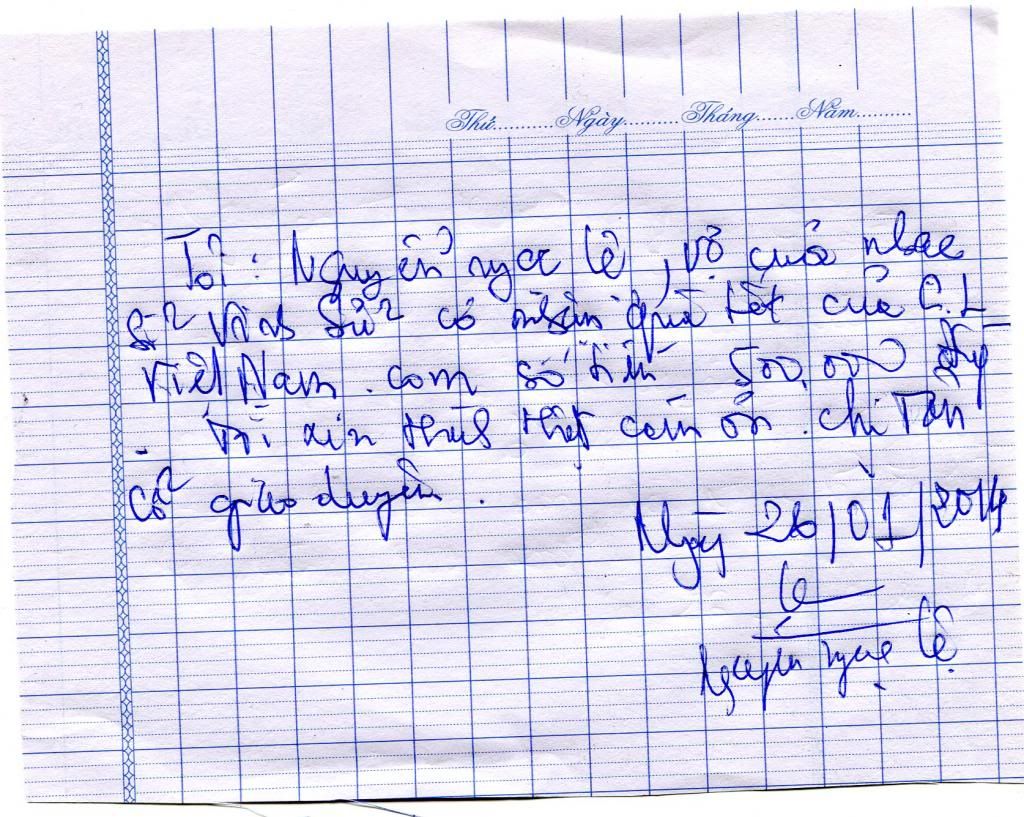 Thứ..........Ngày.........Tháng......Năm.........
Tôi : Nguyễn ngọc lệ, vợ của nhạc
sĩ Vinh Sử có nhận quà tết của C.L
Việt Nam.com số tiền 500,000 đồng
- Tôi xin thành thật cám ơn. chi Tân
cổ giao duyên.
Ngày 26/01/2014
Lệ
Nguyễn ngọc lệ